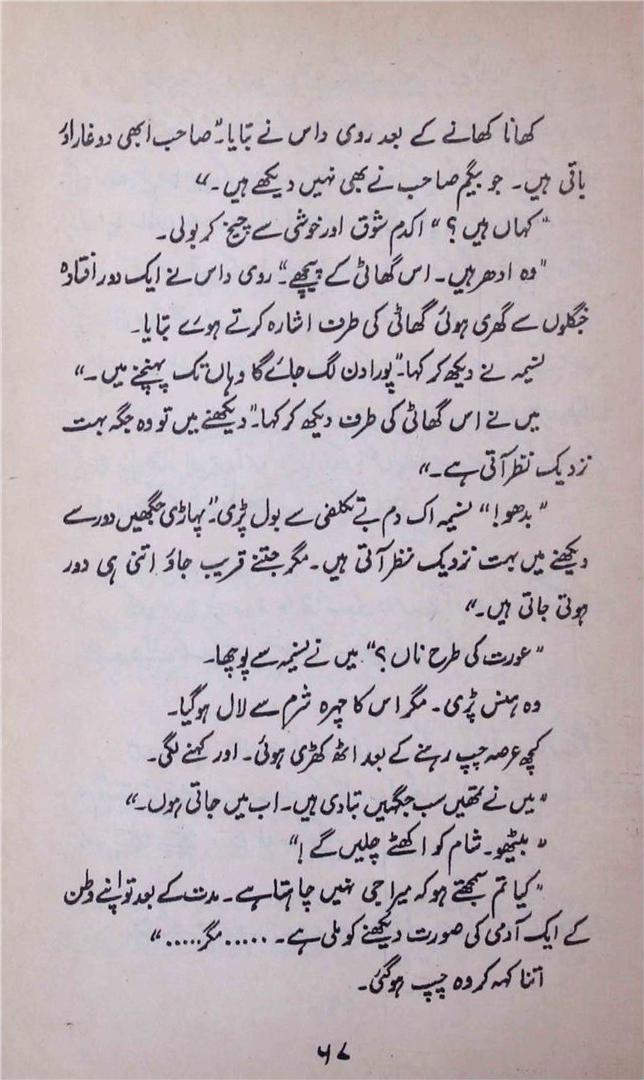 کھانا کھانے کے بعد روی داس نے بتایا۔ "صاحب ابھی دو غار اور
باقی ہیں۔ جو بیگم صاحب نے بھی نہیں دیکھے ہیں۔"
"کہاں ہیں؟" اکدم شوق اور خوشی سے چیخ کر بولی۔
"وہ ادھر ہیں۔ اس گھاٹی کے پیچھے۔" روی داس نے ایک دور افتادہ
جنگلوں سے گھری ہوئی گھاٹی کی طرف اشارہ کرتے ہوئے بتایا۔
نسیمہ نے دیکھ کر کہا۔ "پورا دن لگ جائے گا وہاں تک پہنچنے میں۔"
میں نے اس گھاٹی کی طرف دیکھ کر کہا۔ "دیکھنے میں تو وہ جگہ بہت
نزدیک نظر آتی ہے۔"
"بدھو!" نسیمہ اک دم بے تکلفی سے بول پڑی۔ "پہاڑی جگہیں دور سے
دیکھنے میں بہت نزدیک نظر آتی ہیں۔ مگر جتنے قریب جاؤ اتنی ہی دور
ہوتی جاتی ہیں۔"
"عورت کی طرح ناں؟" میں نے نسیمہ سے پوچھا۔
وہ ہنس پڑی۔ مگر اس کا چہرہ شرم سے لال ہو گیا۔
کچھ عرصہ چپ رہنے کے بعد اٹھ کھڑی ہوئی۔ اور کہنے لگی۔
"میں نے تمھیں سب جگہیں بتا دی ہیں۔ اب میں جاتی ہوں۔"
"بیٹھو۔ شام کو اکھٹے چلیں گے!"
"کیا تم سمجھتے ہو کہ میرا جی نہیں چاہتا ہے۔ مدت کے بعد تو اپنے وطن
کے ایک آدمی کی صورت دیکھنے کو ملی ہے۔ ..... مگر....."
اتنا کہہ کر وہ چپ ہو گئی۔
۶۷